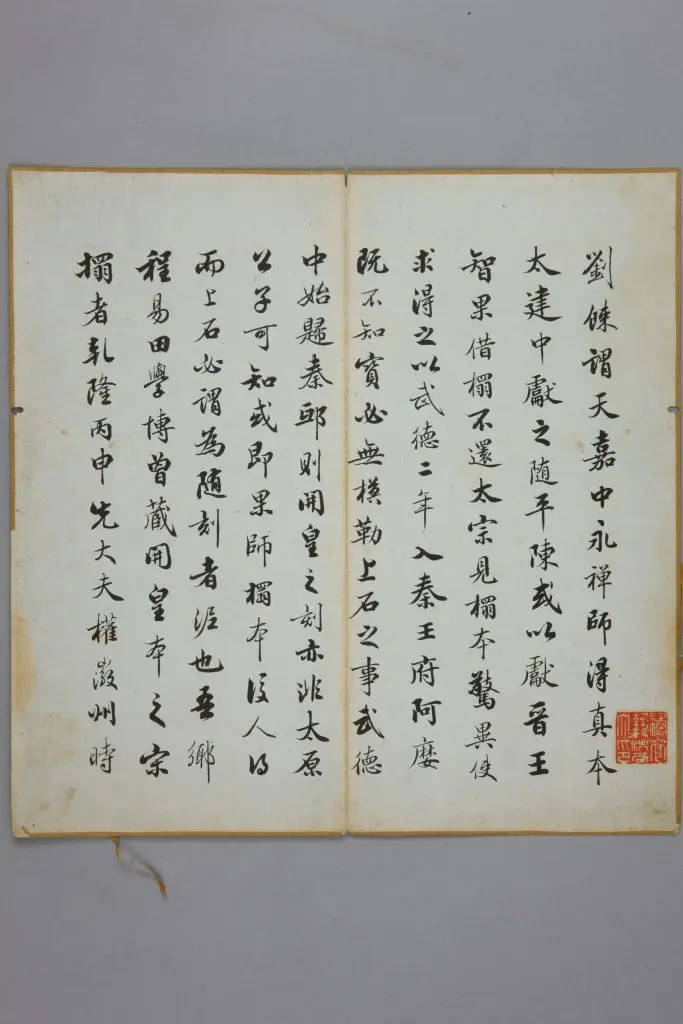 劉餗謂天嘉中永禅師得真本
太建中獻之随平陳或以獻晉王
智果借搨不還太宗見搨本驚異使
求得之以武德二年入秦王府阿麼
既不知寶必無模勒上石之事武德
中始歸秦邸則開皇之刻亦非太原
公子可知或即果師搨本後人得
而上石必謂為随刻者泥也吾鄉
程易田學博曾藏開皇本之宗
搨者乾隆丙申先大夫權嶶州時